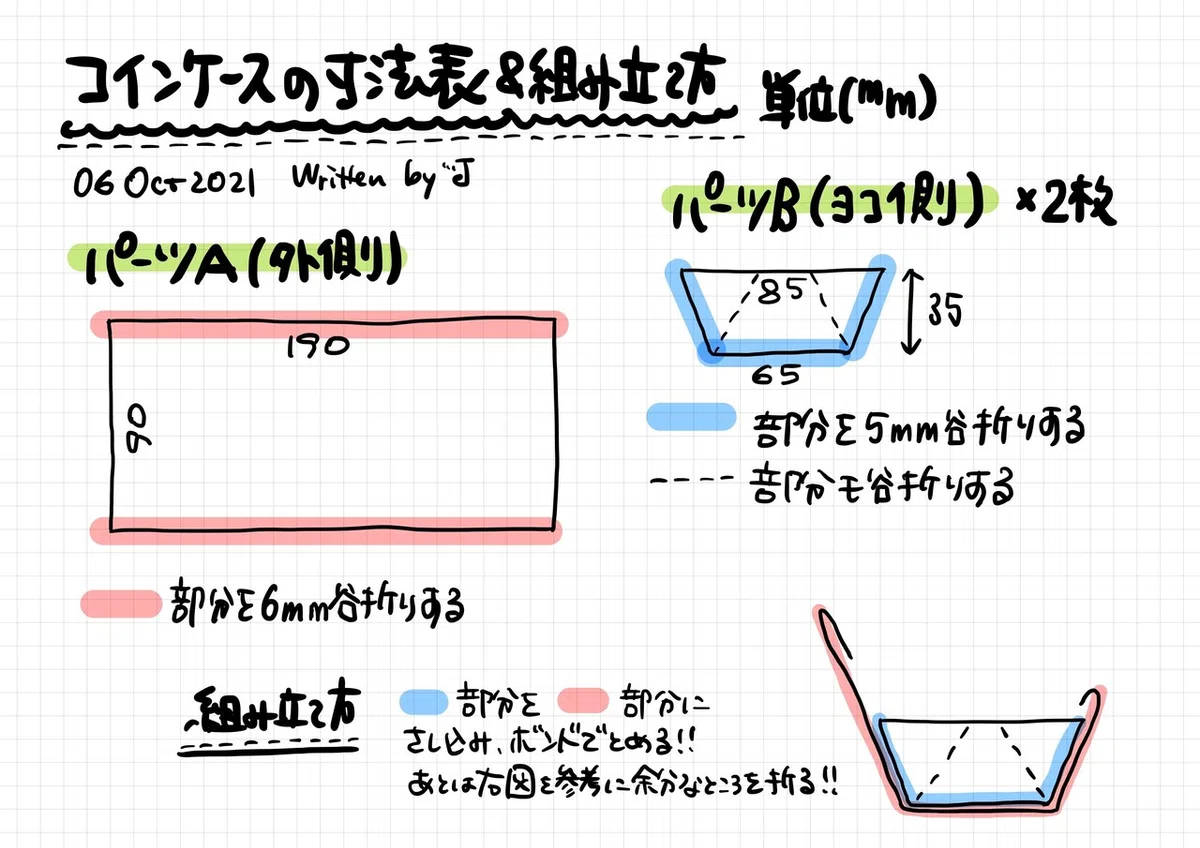 コインケースの寸法表&組み立て方 単位(mm)
06 Oct 2021 Written by "J
パーツA(外側)
190
90
部分を6mm谷折りする
パーツB(ヨコ側) ×2枚
85
35
65
部分を5mm谷折りする
部分も谷折りする
組み立て方
部分を 部分に
さし込み、ボンドでとめる!!
あとは右図を参考に余分なところを折る!!